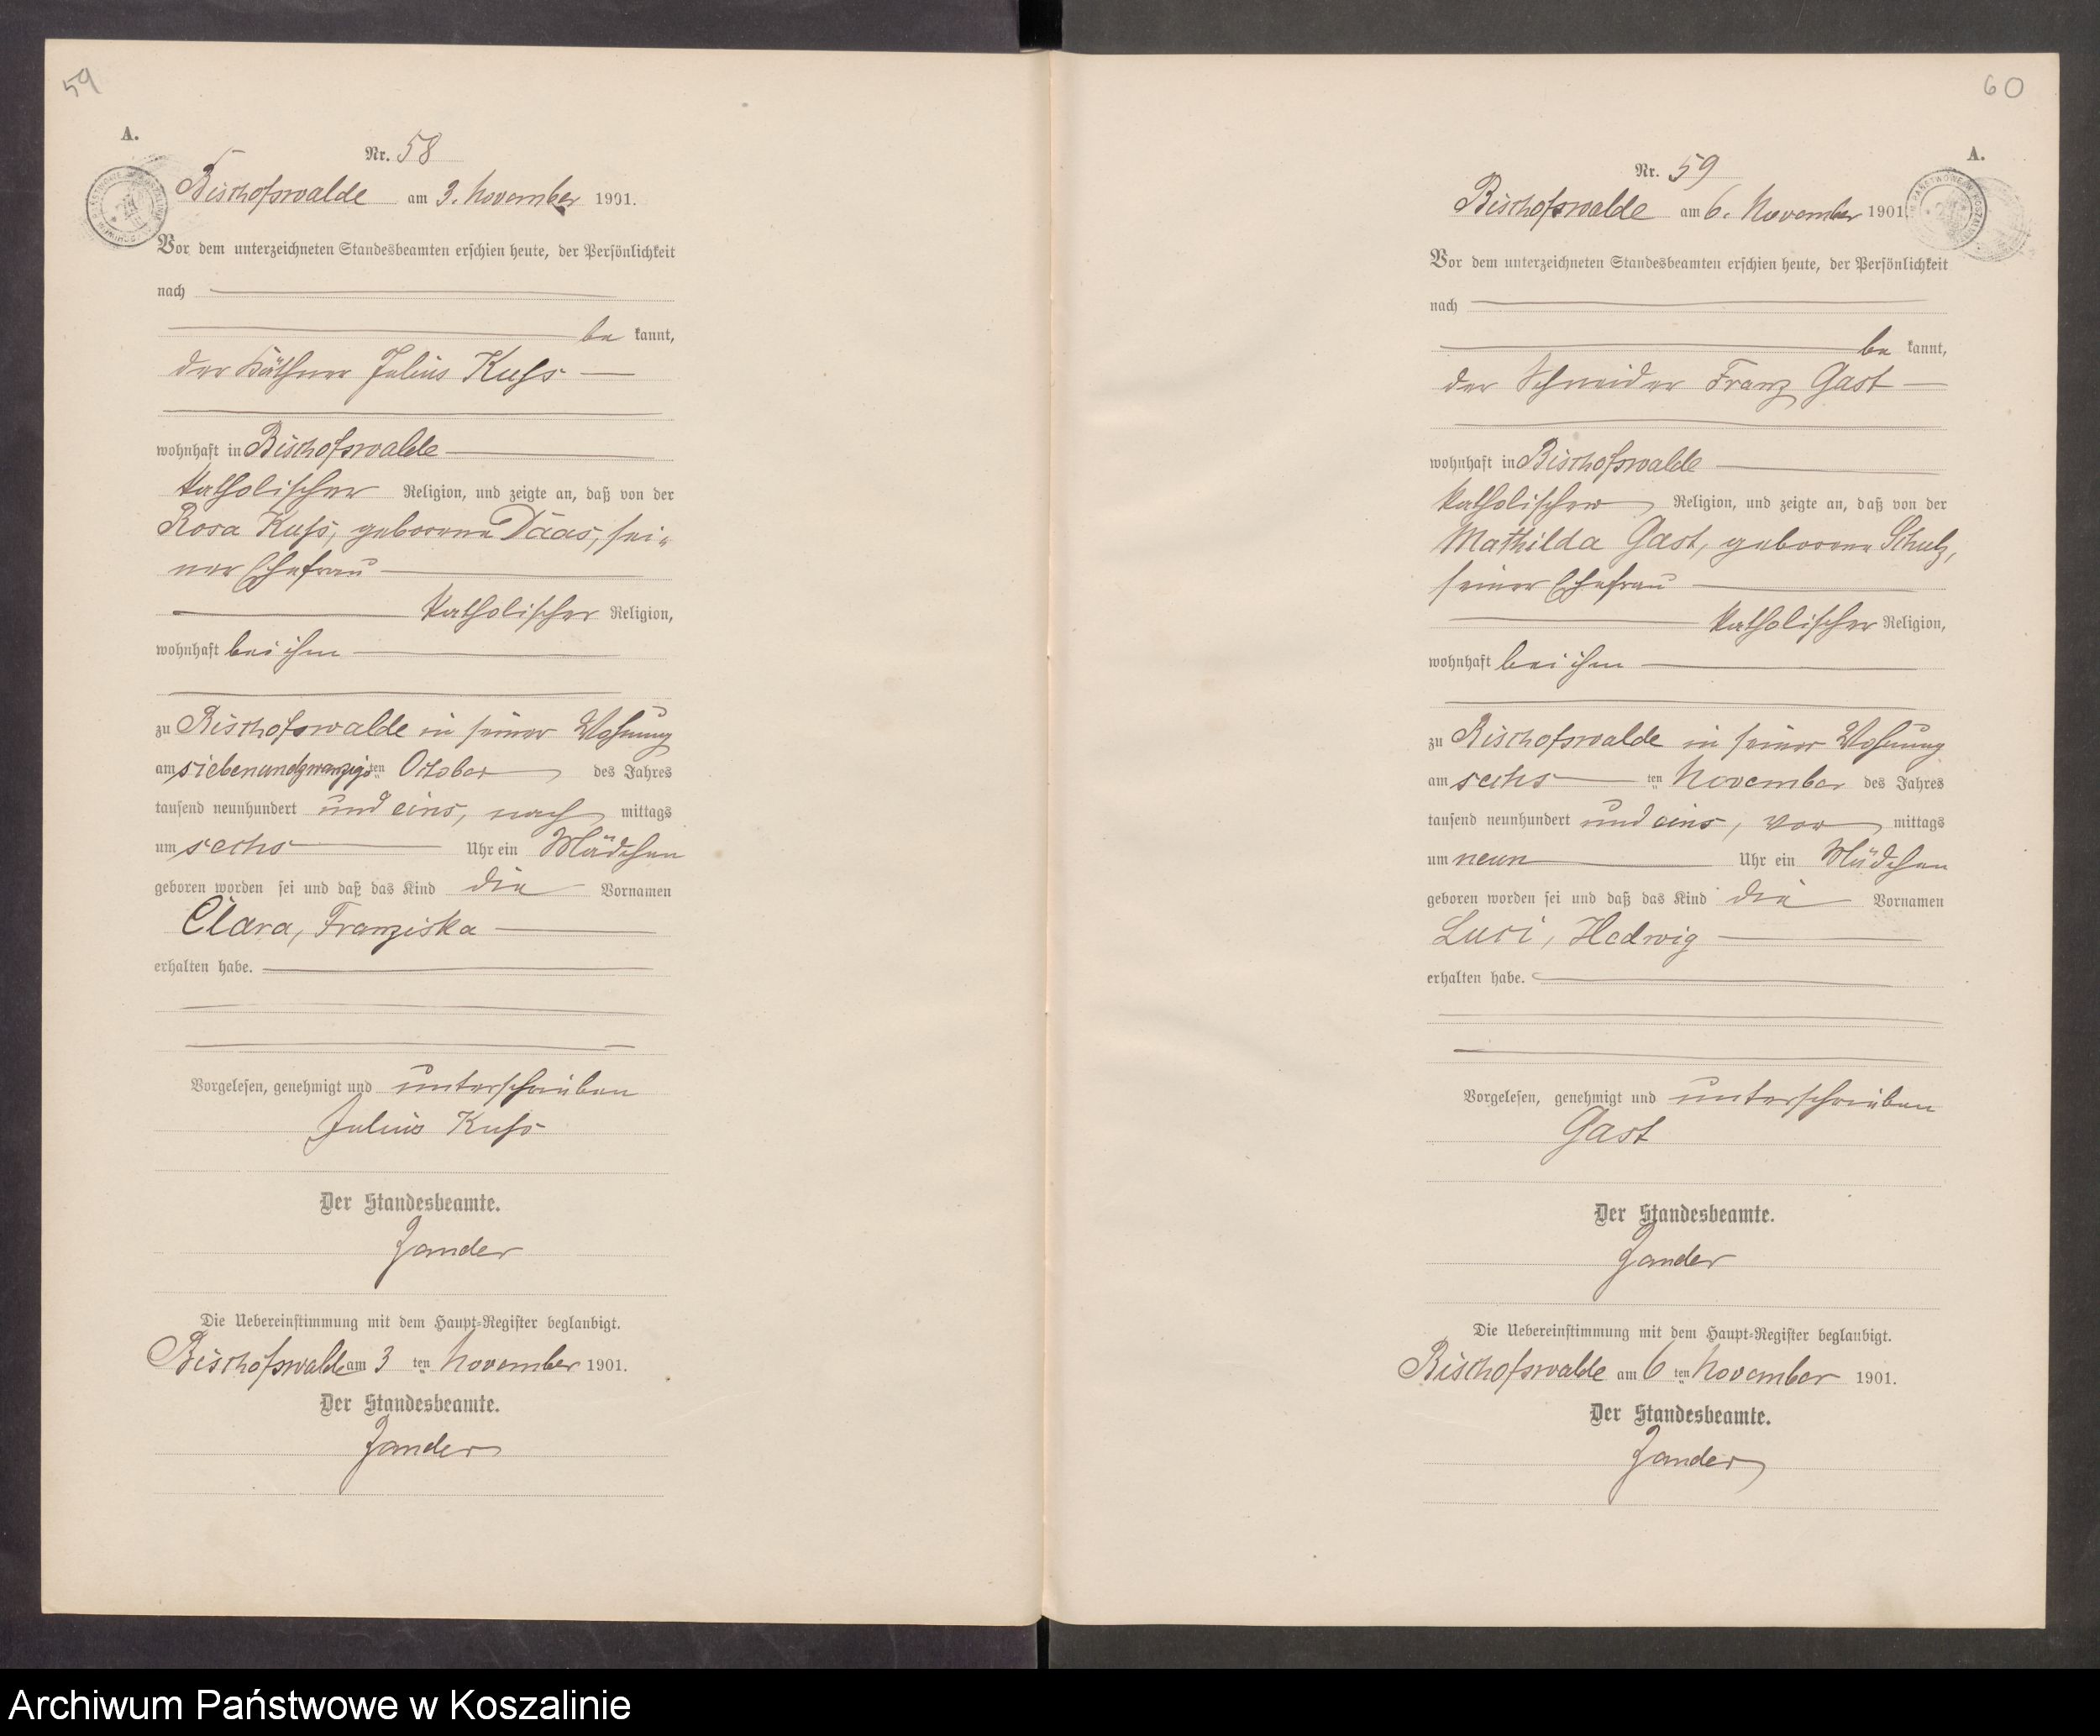 59
A.
Nr. 58
Bischofswalde am 3. November 1901.
Vor dem unterzeichneten Standesbeamten erschien heute, der Persönlichkeit
nach
be kannt,
der Käthner Julius Kuss
wohnhaft in Bischofswalde
katholischer Religion, und zeigte an, daß von der
Rosa Kuss, geborene Daas, sei-
ner Ehefrau
katholischer Religion,
wohnhaft bei ihm
zu Bischofswalde in seiner Wohnung
am siebenundzwanzigsten October des Jahres
tausend neunhundert und eins, nach mittags
um sechs Uhr ein Mädchen
geboren worden sei und daß das Kind die Vornamen
Clara, Franziska
erhalten habe.
Vorgelesen, genehmigt und unterschrieben
Julius Kuss
Der Standesbeamte.
Zander
Die Uebereinstimmung mit dem Haupt-Register beglaubigt.
Bischofswalde am 3 ten November 1901.
Der Standesbeamte.
Zander
60
A.
Nr. 59
Bischofswalde am 6. November 1901.
Vor dem unterzeichneten Standesbeamten erschien heute, der Persönlichkeit
nach
be kannt,
der Schneider Franz Gast
wohnhaft in Bischofswalde
katholischer Religion, und zeigte an, daß von der
Mathilda Gast, geborene Schulz,
seiner Ehefrau
katholischer Religion,
wohnhaft bei ihm
zu Bischofswalde in seiner Wohnung
am sechs ten November des Jahres
tausend neunhundert und eins, vor mittags
um neun Uhr ein Mädchen
geboren worden sei und daß das Kind die Vornamen
Luci, Hedwig
erhalten habe.
Vorgelesen, genehmigt und unterschrieben
Gast
Der Standesbeamte.
Zander
Die Uebereinstimmung mit dem Haupt-Register beglaubigt.
Bischofswalde am 6 ten November 1901.
Der Standesbeamte.
Zander
Archiwum Państwowe w Koszalinie